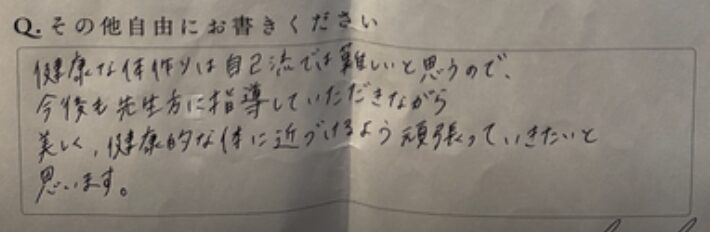 Q.その他自由にお書きください
健康な体作りは自己流では難しいと思うので、
今後も先生方に指導していただきながら
美しく、健康的な体に近づけるよう頑張っていきたいと
思います。